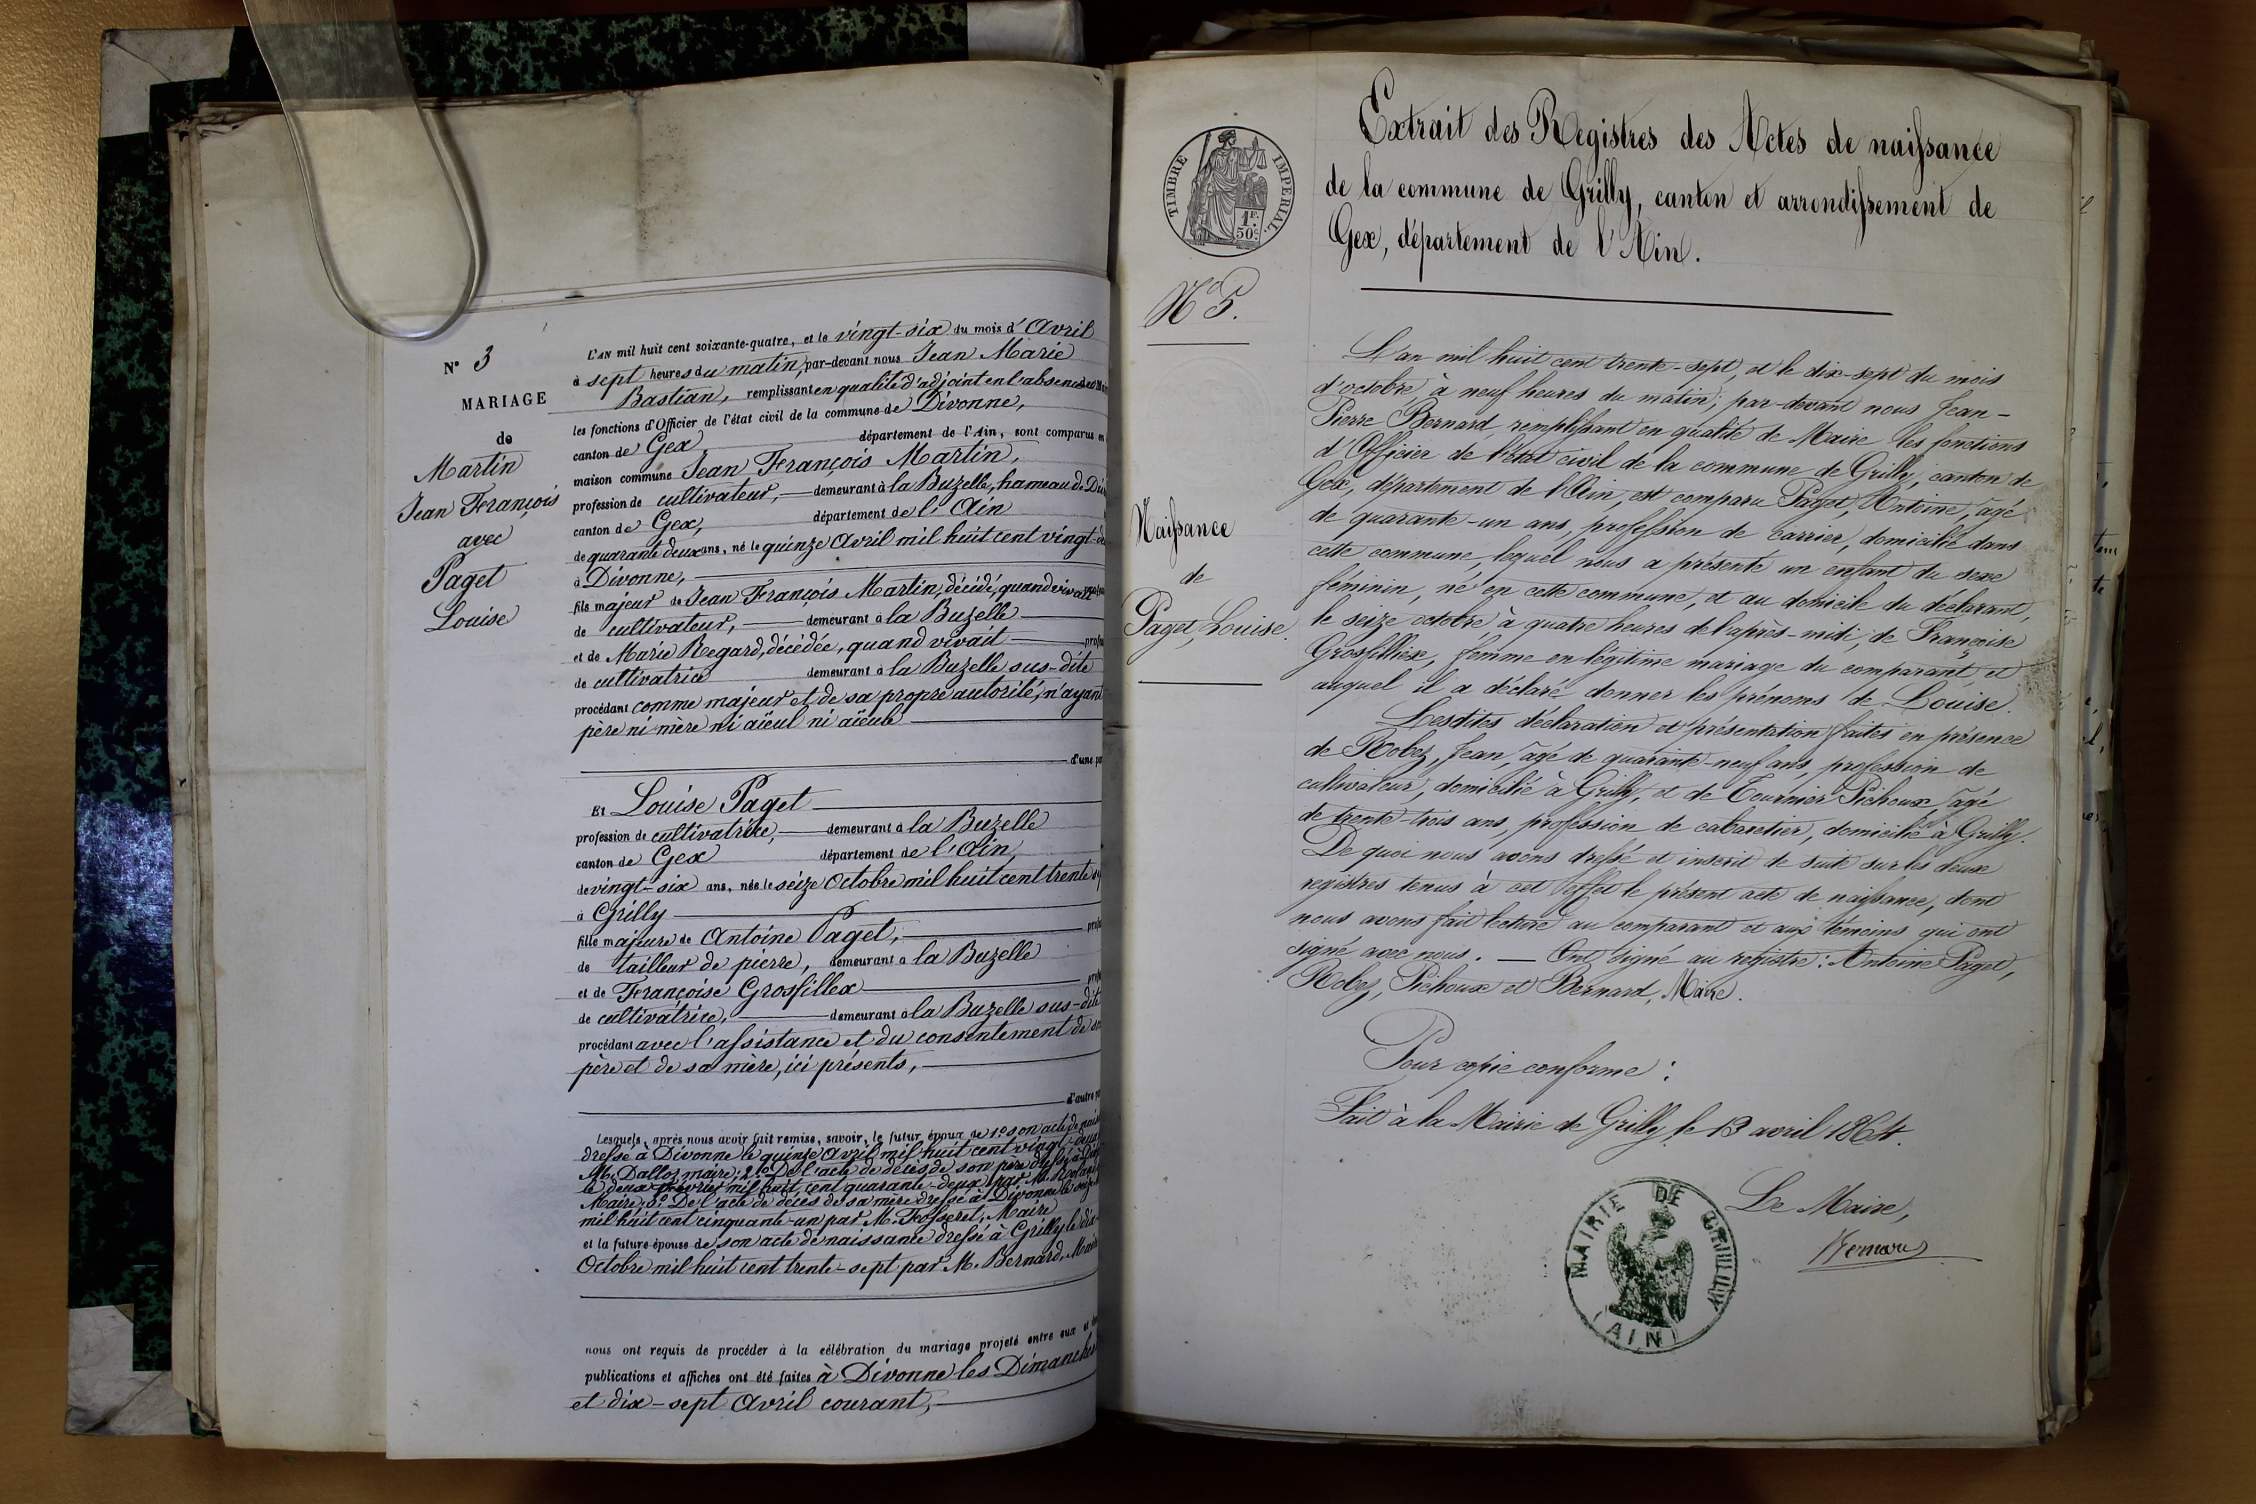 N° 3
MARIAGE
de
Martin
Jean François
avec
Paget
Louise
L'AN mil huit cent soixante-quatre, et le vingt-six du mois d'Avril
à sept heures du matin, par-devant nous Jean Marie
Bastian, remplissant en qualité d'adjoint en l'absence
les fonctions d'Officier de l'état civil de la commune de Divonne,
canton de Gex département de l'Ain, sont comparus en
maison commune Jean François Martin,
profession de cultivateur, demeurant à la Buzelle, hameau de
canton de Gex, département de l'Ain
de quarante deux ans, né le quinze Avril mil huit cent vingt-
à Divonne,
fils majeur de Jean François Martin, décédé, quand vivait
de cultivateur, demeurant à la Buzelle
et de Marie Regard, décédée, quand vivait
de cultivatrice demeurant à la Buzelle sus-dite
procédant comme majeur et de sa propre autorité, n'ayant
père ni mère ni aïeul ni aïeule
d'une
Et Louise Paget
profession de cultivatrice, demeurant à la Buzelle
canton de Gex département de l'Ain,
de vingt-six ans, née le seize Octobre mil huit cent trente
à Grilly
fille majeure de Antoine Paget,
de tailleur de pierre, demeurant à la Buzelle
et de Françoise Grosfillex
de cultivatrice, demeurant à la Buzelle sus-dite
procédant avec l'assistance et du consentement de
père et de sa mère, ici présents,
d'autre
Lesquels, après nous avoir fait remise, savoir, le futur époux de 1° son acte de
dressé à Divonne le quinze Avril mil huit cent vingt-deux
M. Dalloz, maire; 2° De l'acte de décès de son père dressé à
le deux février mil huit cent quarante-deux par M.
Maire; 3° De l'acte de décès de sa mère dressé à Divonne le
mil huit cent cinquante-un par M. Fosseret, Maire
et la future épouse de son acte de naissance dressé à Grilly le dix-
Octobre mil huit cent trente-sept par M. Bernard, Maire
nous ont requis de procéder à la célébration du mariage projeté entre eux et
publications et affiches ont été faites à Divonne les Dimanches
et dix-sept Avril courant,
TIMBRE IMPERIAL.
1F.
50c.
N° 5.
Naissance
de
Paget, Louise.
Extrait des Registres des Actes de naissance
de la commune de Grilly, canton et arrondissement de
Gex, département de l'Ain.
L'an mil huit cent trente-sept, et le dix-sept du mois
d'octobre à neuf heures du matin, par-devant nous Jean-
Pierre Bernard, remplissant en qualité de Maire les fonctions
d'Officier de l'état civil de la commune de Grilly, canton de
Gex, département de l'Ain, est comparu Paget, Antoine, âgé
de quarante-un ans, profession de carrier, domicilié dans
cette commune, lequel nous a présenté un enfant du sexe
féminin, né en cette commune, et au domicile du déclarant,
le seize octobre, à quatre heures de l'après-midi, de Françoise
Grosfilliex, femme en légitime mariage du comparant, et
auquel il a déclaré donner les prénoms de Louise.
Lesdites déclaration et présentation faites en présence
de Robez, Jean, âgé de quarante-neuf ans, profession de
cultivateur, domicilié à Grilly, et de Tournier Pichoux, âgé
de trente-trois ans, profession de cabaretier, domicilié à Grilly.
De quoi nous avons dressé et inscrit de suite sur les deux
registres tenus à cet effet le présent acte de naissance, dont
nous avons fait lecture au comparant et aux témoins qui ont
signé avec nous. — Ont signé au registre: Antoine Paget,
Robez, Pichoux et Bernard, Maire.
Pour copie conforme:
Fait à la Mairie de Grilly, le 13 avril 1864.
Le Maire,
Bernard
MAIRIE DE
(AIN)